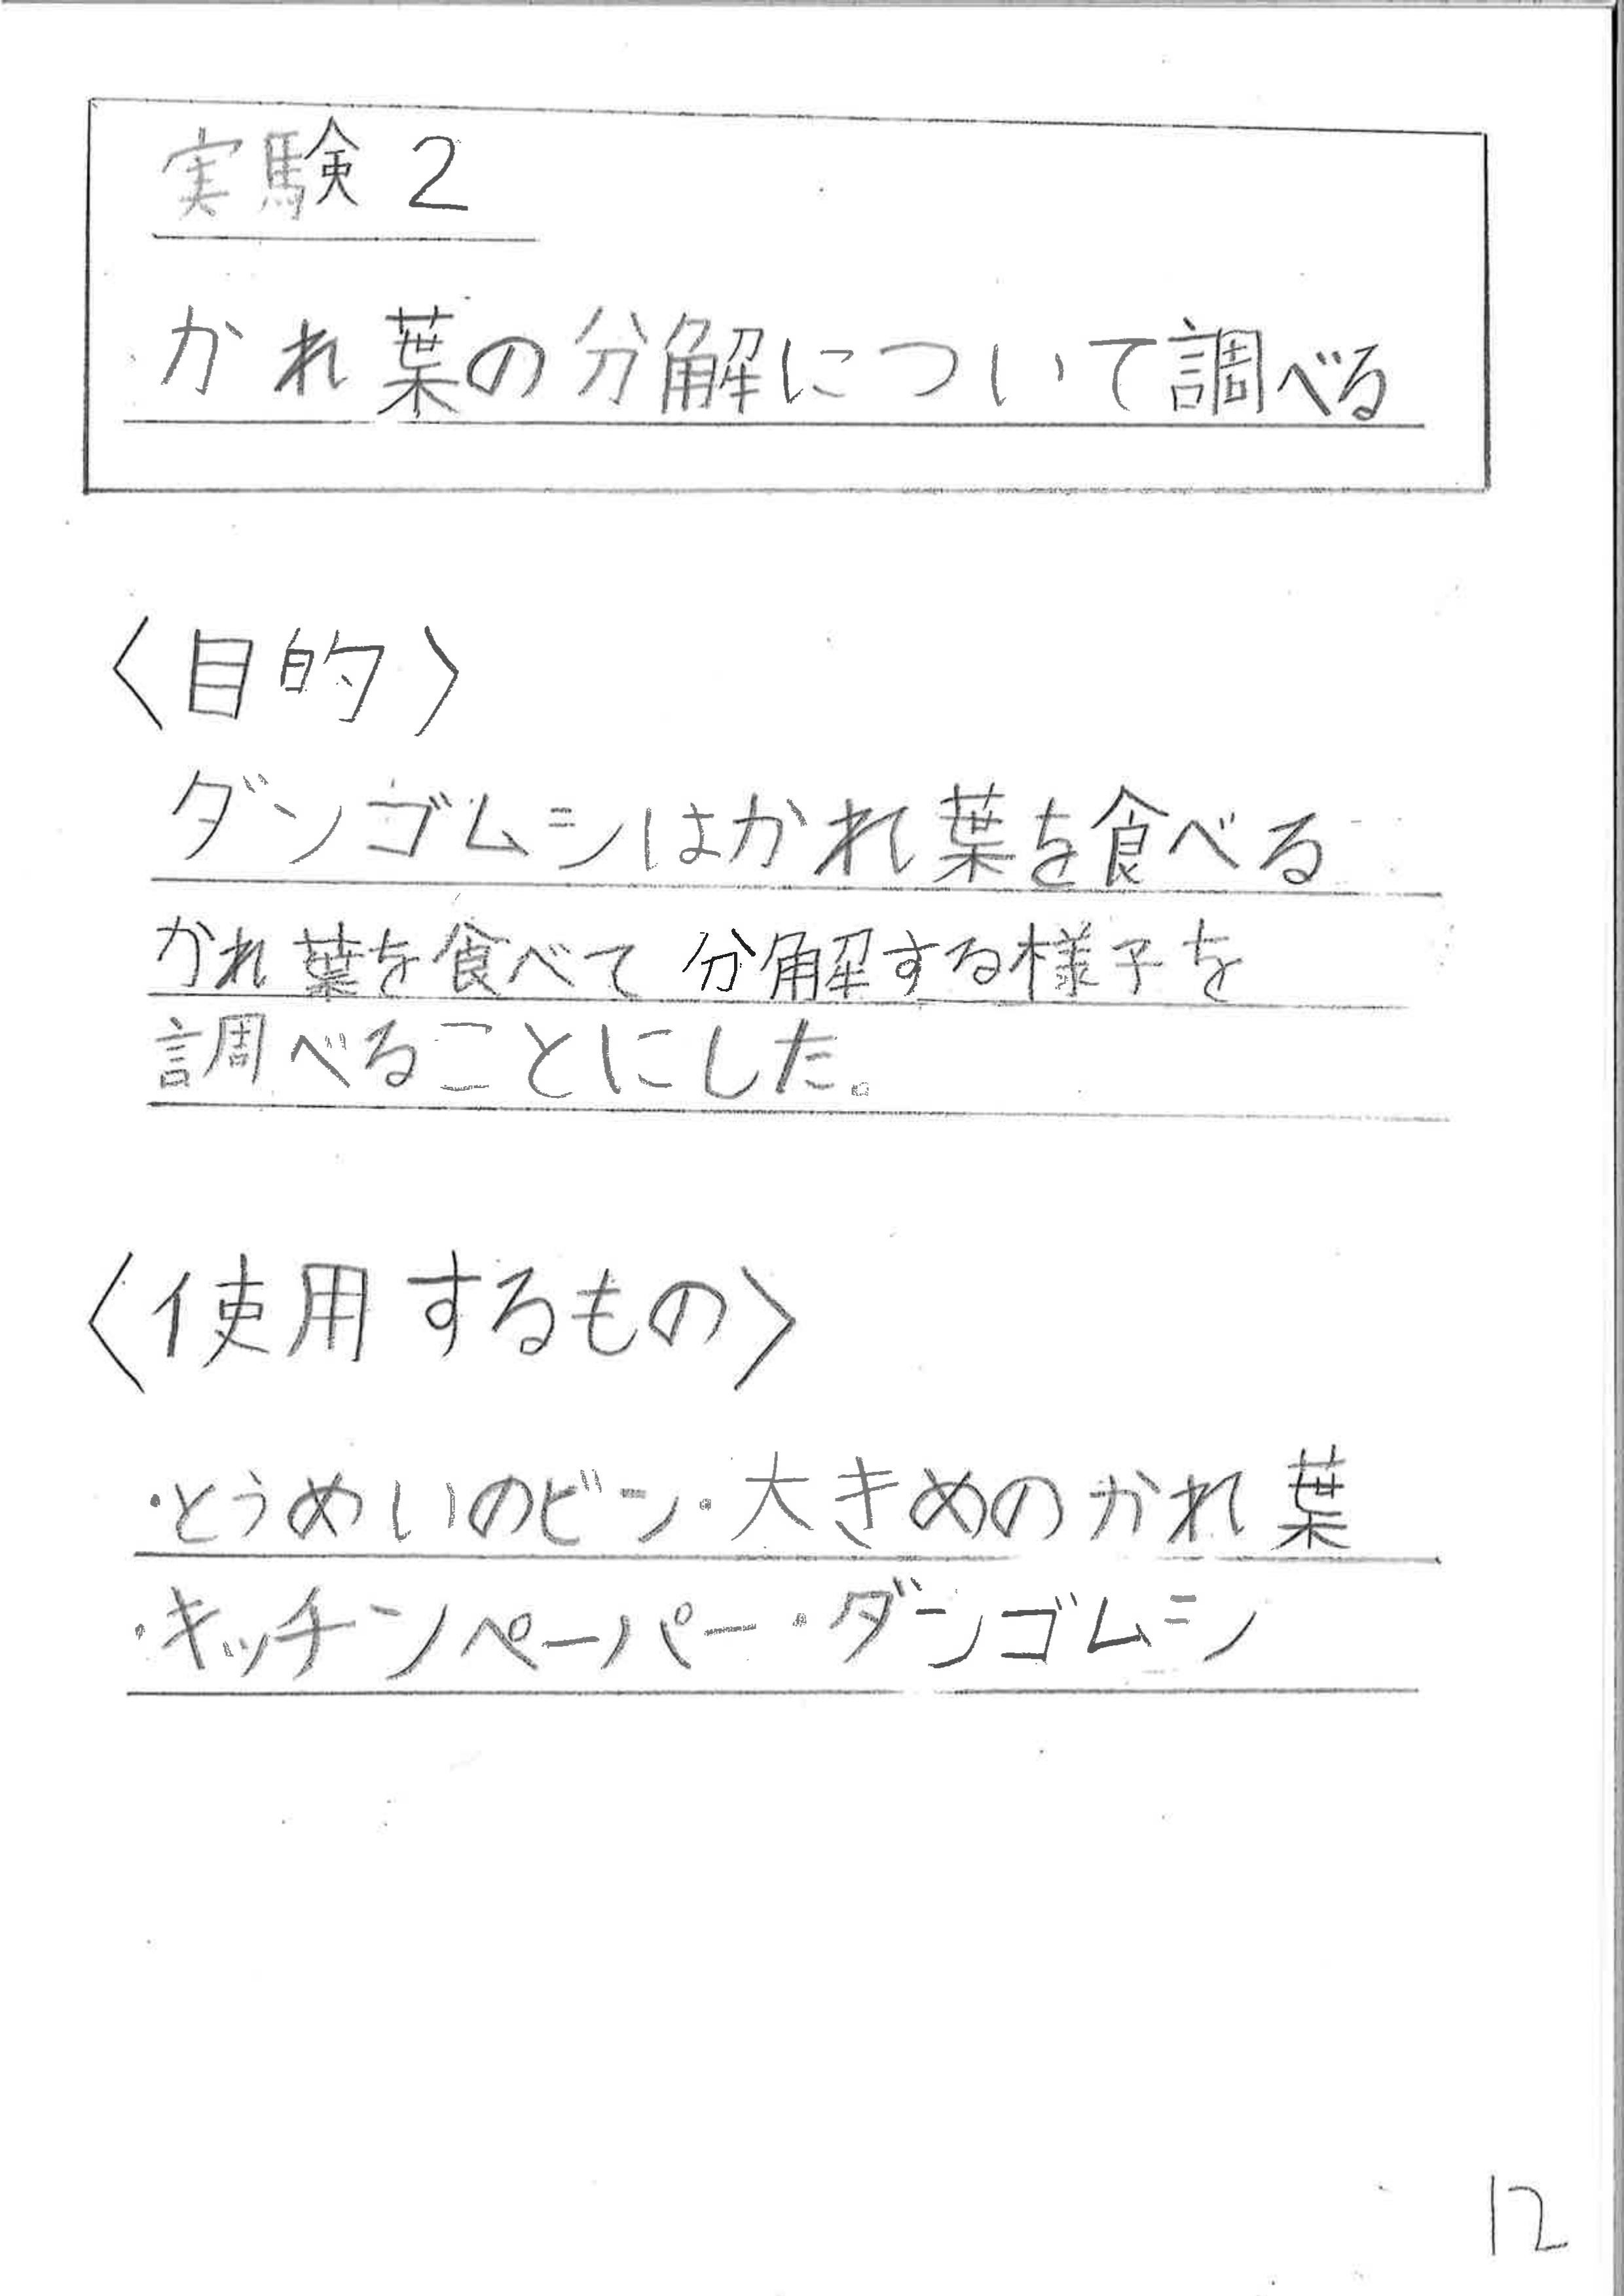 実験 2
かれ葉の分解について調べる
〈目的〉
ダンゴムシはかれ葉を食べる
かれ葉を食べて分解する様子を
調べることにした。
〈使用するもの〉
・とうめいのビン・大きめのかれ葉
・キッチンペーパー・ダンゴムシ
12